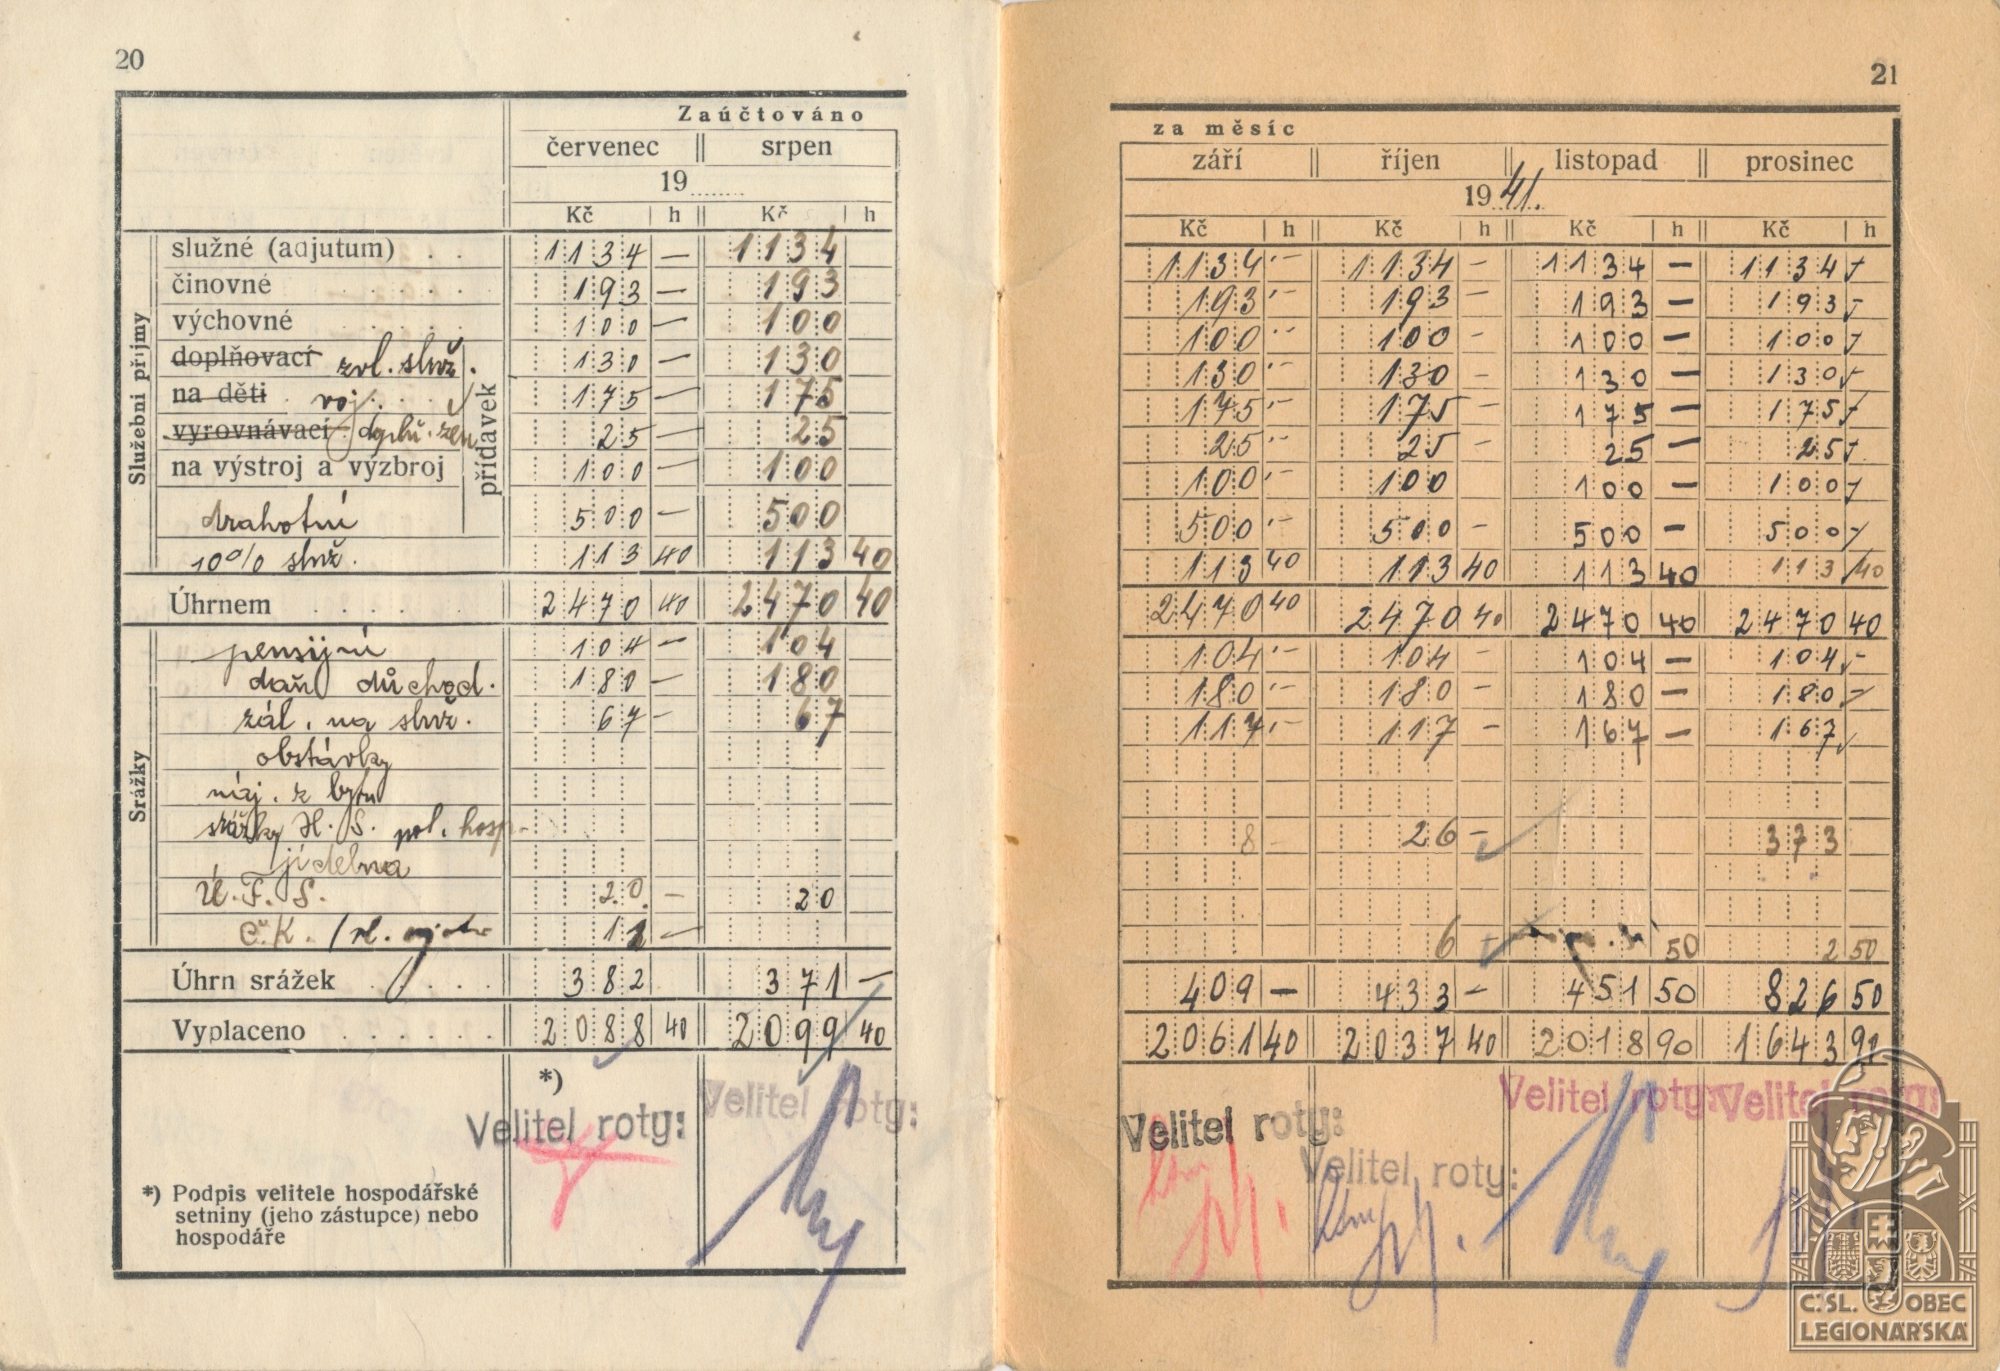 20
Zaúčtováno
červenec srpen
19
Kč h Kč h
Služební příjmy
přídavek
služné (adjutum) 1134 — 1134
činovné 193 — 193
výchovné 100 — 100
doplňovací zvl. služ. 130 — 130
na děti voj. 175 — 175
vyrovnávací doplň. 25 — 25
na výstroj a výzbroj 100 — 100
drahotní 500 — 500
10% služ. 113 40 113 40
Úhrnem 2470 40 2470 40
Srážky
pensijní 104 — 104
daň důchod. 180 — 180
zál. na služ. 67 — 67
obstávky
náj. z bytu
srážky H. S. pol. hosp.
jídelna
Ú. F. S. 20. — 20
Č.K. 11 —
Úhrn srážek 382 371 —
Vyplaceno 2088 40 2099 40
*)
Velitel roty: Velitel roty:
*) Podpis velitele hospodářské
setniny (jeho zástupce) nebo
hospodáře
21
za měsíc
září říjen listopad prosinec
1941.
Kč h Kč h Kč h Kč h
1134.— 1134 — 1134 — 1134 —
193.— 193 — 193 — 193 —
100.— 100 — 100 — 100 —
130.— 130 — 130 — 130 —
175.— 175 — 175 — 175 —
25.— 25 — 25 — 25 —
100.— 100 100 — 100 —
500.— 500 — 500 — 500 —
113 40 113 40 113 40 113 40
2470 40 2470 40 2470 40 2470 40
104.— 104 — 104 — 104 —
180.— 180 — 180 — 180 —
117.— 117 — 167 — 167
8 — 26 — 373
6 50 2 50
409 — 433 — 451 50 826 50
2061 40 2037 40 2018 90 1643 90
Velitel roty: Velitel roty: Velitel roty: Velitel roty:
Č.SL. OBEC
LEGIONÁŘSKÁ